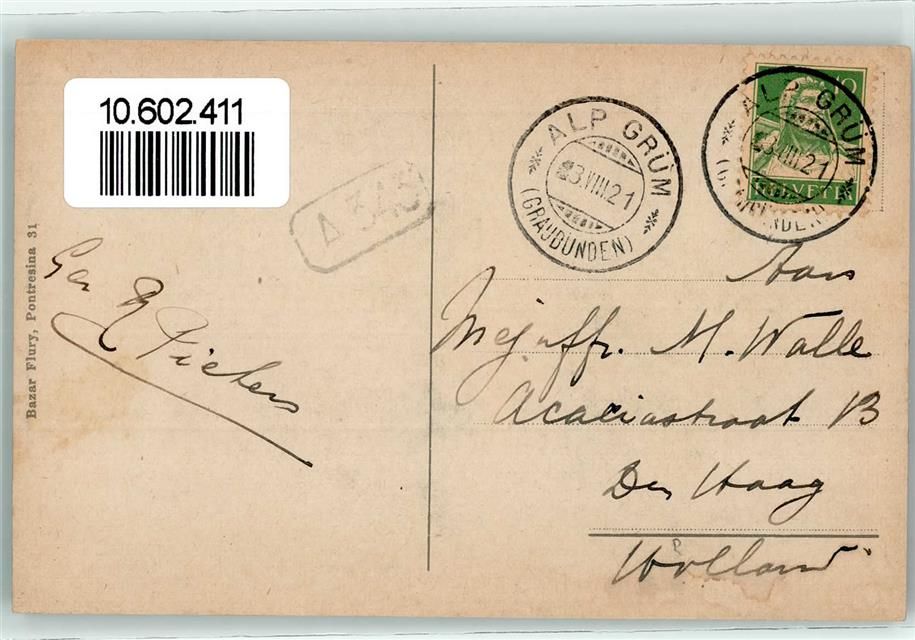 10.602.411
Bazar Flury, Pontresina 31
Δ 343
ALP GRÜM
3.VIII.21
(GRAUBÜNDEN)
ALP GRÜM
3.VIII.21
10
HELVETIA
Aan
Mejuffr. M. Walle
Acaciastraat 13
Den Haag
Holland